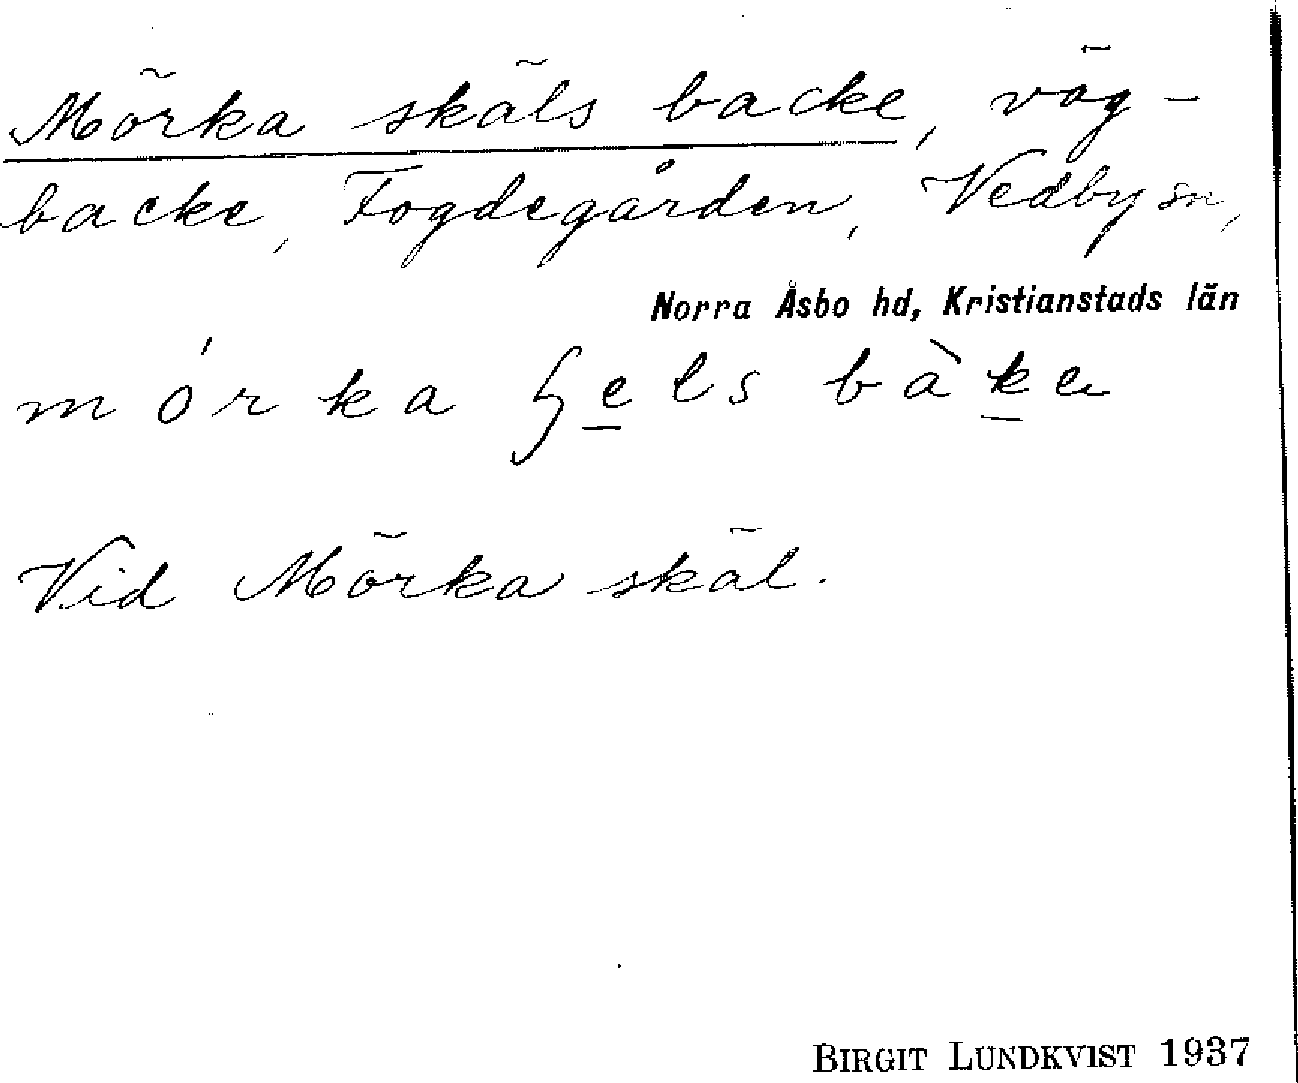 Mörka skäls backe, väg-
backe, Fogdegården, Vedby sn,
Norra Åsbo hd, Kristianstads län
mórka ʃels bàke
Vid Mörka skäl.
BIRGIT LUNDKVIST 1937